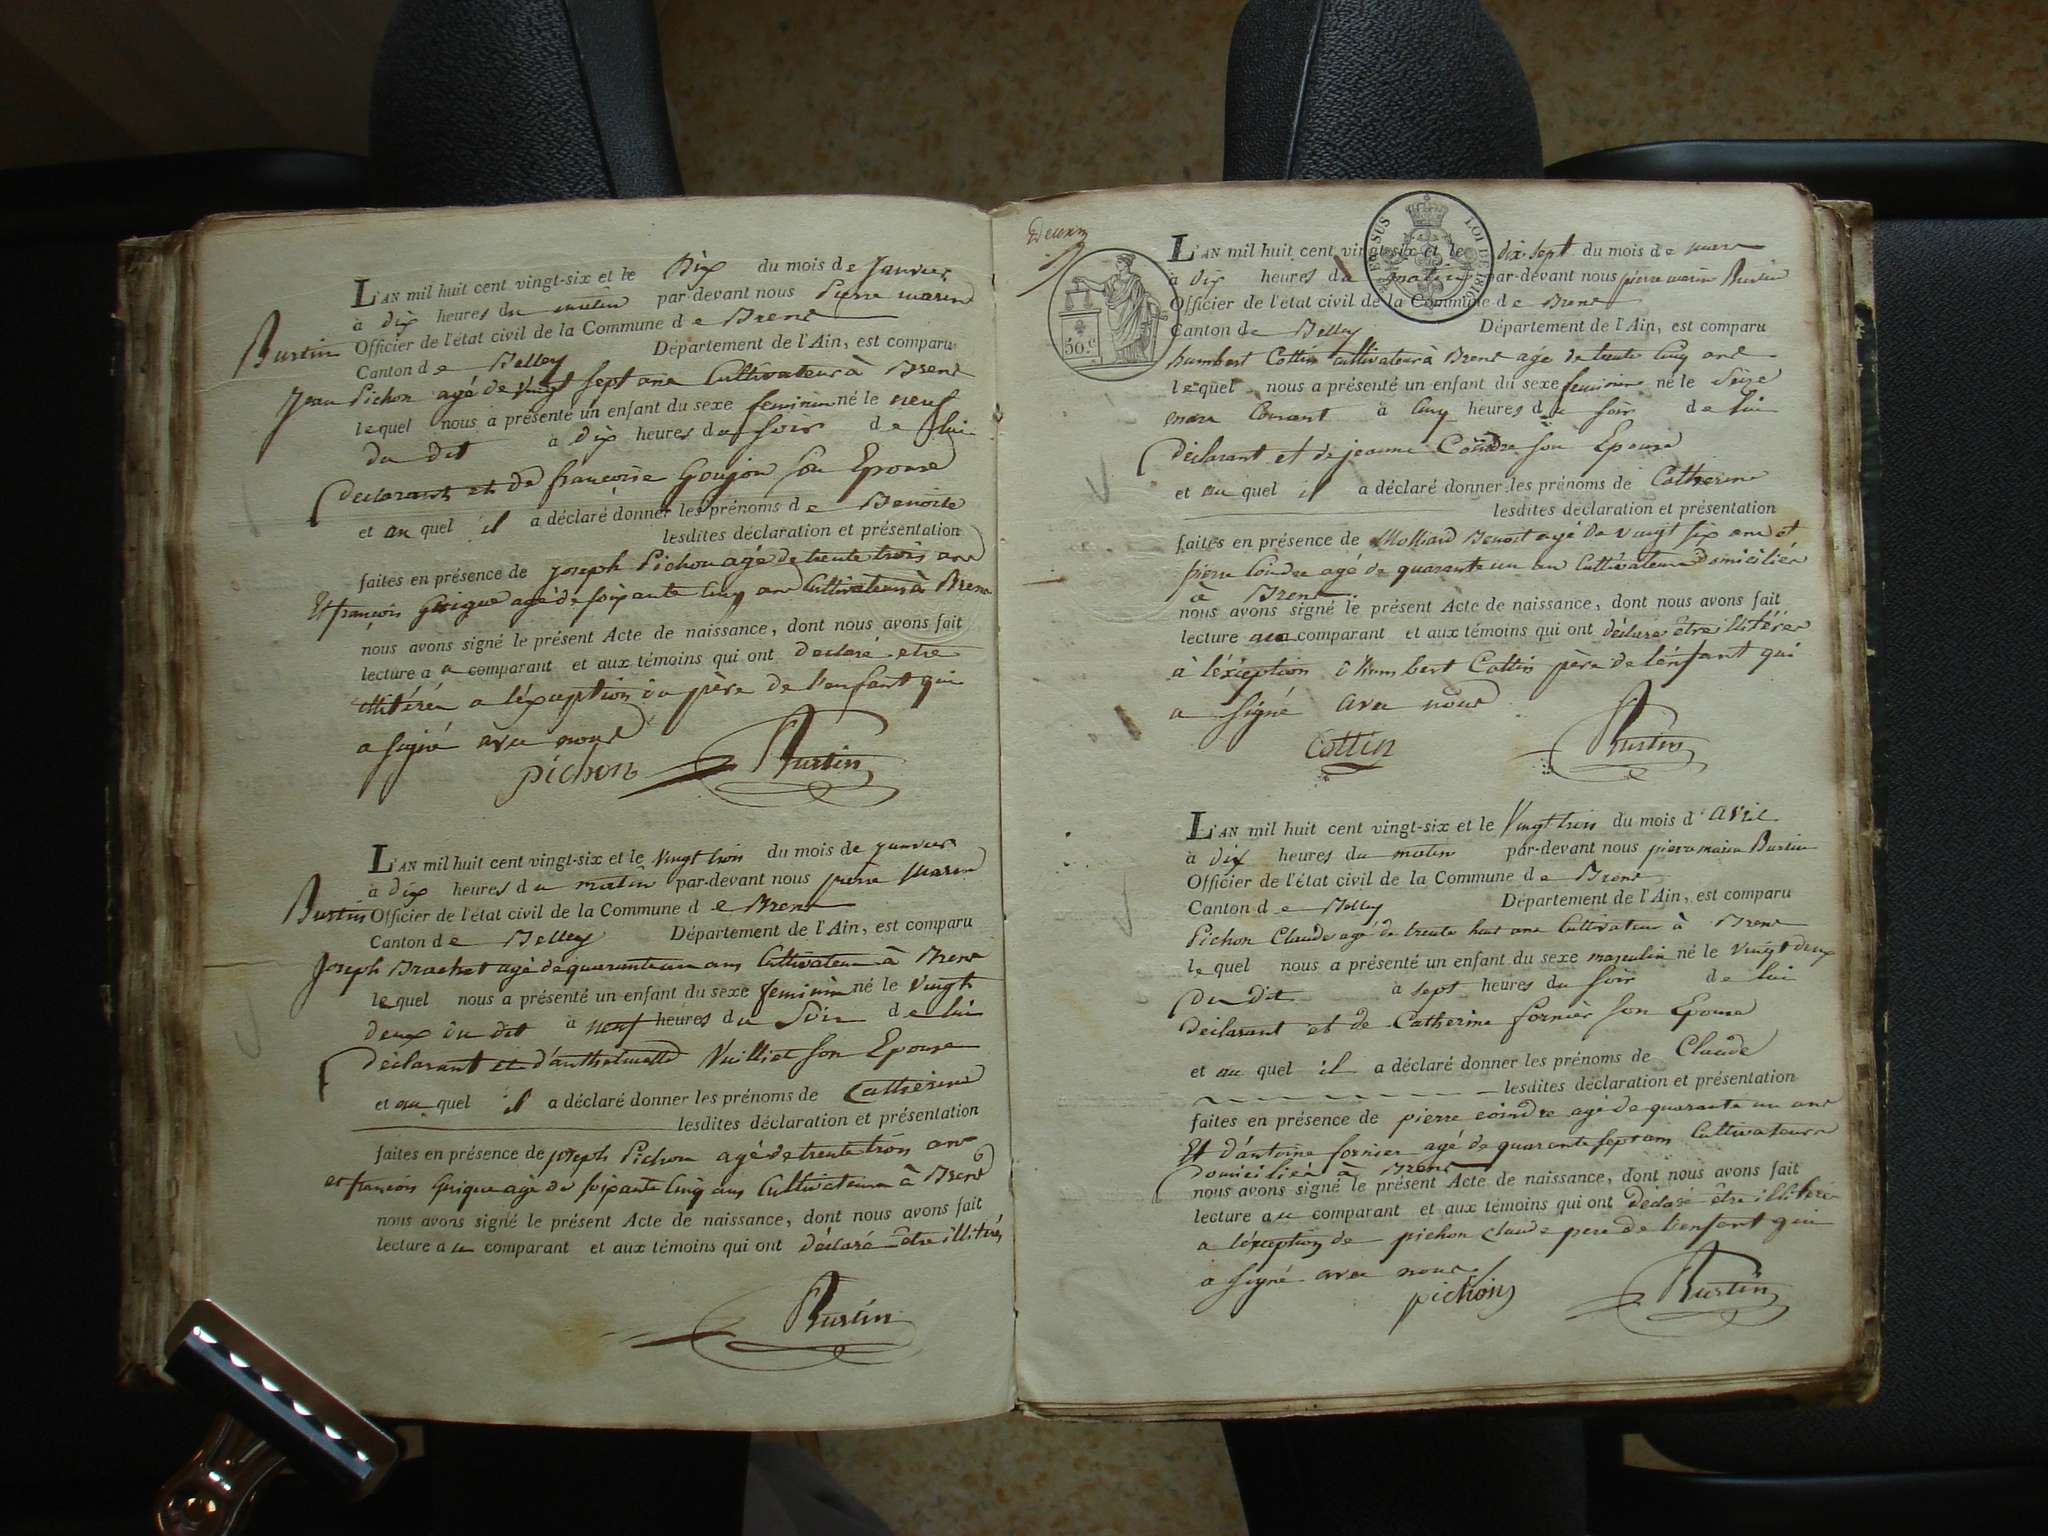 L'AN mil huit cent vingt-six et le Dix du mois de Janvier
à dix heures du matin par-devant nous Pierre marin
Burtin Officier de l'état civil de la Commune de Brens
Canton de Belley Département de l'Ain, est comparu
Jean Pichon agé de vingt sept ans Cultivateur à Brens
lequel nous a présenté un enfant du sexe feminin né le neuf
du dit à dix heures du soir de lui
déclarant et de françoise Goujon son Epouse
et au quel il a déclaré donner les prénoms de Benoite
lesdites déclaration et présentation
faites en présence de joseph Pichon agé de trente trois ans
Et françois Guigue agé de soixante cinq ans Cultivateurs à Brens
nous avons signé le présent Acte de naissance, dont nous avons fait
lecture au comparant et aux témoins qui ont déclaré etre
illitérés a l'éxception du père de l'enfant qui
a signé avec nous
pichon Burtin
L'AN mil huit cent vingt-six et le vingt trois du mois de janvier
à dix heures du matin par-devant nous pierre Marin
Burtin Officier de l'état civil de la Commune de Brens
Canton de Belley Département de l'Ain, est comparu
Joseph Brachet agé de quarante un ans Cultivateur à Brens
lequel nous a présenté un enfant du sexe feminin né le vingt
deux du dit à neuf heures du Soir de lui
déclarant et d'anthelmette Vuilliet son Epouse
et au quel il a déclaré donner les prénoms de Catherine
lesdites déclaration et présentation
faites en présence de joseph Pichon agé de trente trois ans
et françois Guigue agé de soixante cinq ans Cultivateurs à Brens
nous avons signé le présent Acte de naissance, dont nous avons fait
lecture au comparant et aux témoins qui ont déclaré être illitérés
Burtin
50.c
EN SUS LOI DE
L'AN mil huit cent vingt-six et le dix sept du mois de mars
à dix heures du matin par-devant nous pierre marin Burtin
Officier de l'état civil de la Commune de Brens
Canton de Belley Département de l'Ain, est comparu
humbert Cottin cultivateur à Brens agé de trente cinq ans
lequel nous a présenté un enfant du sexe feminin né le Seize
mars Courant à cinq heures du soir de lui
déclarant et de jeanne Coindre son Epouse
et au quel il a déclaré donner les prénoms de Catherine
lesdites déclaration et présentation
faites en présence de Molliard Benoit agé de vingt six ans et
pierre Coindre agé de quarante un an Cultivateurs domiciliés
à Brens
nous avons signé le présent Acte de naissance, dont nous avons fait
lecture au comparant et aux témoins qui ont déclaré être illitérés
à l'éxception d'humbert Cottin père de l'enfant qui
a signé avec nous
Cottin Burtin
L'AN mil huit cent vingt-six et le Vingt trois du mois d'avril
à dix heures du matin par-devant nous pierre marin Burtin
Officier de l'état civil de la Commune de Brens
Canton de Belley Département de l'Ain, est comparu
Pichon Claude agé de trente huit ans Cultivateur à Brens
lequel nous a présenté un enfant du sexe masculin né le vingt deux
du dit à sept heures du soir de lui
déclarant et de Catherine fornier son Epouse
et au quel il a déclaré donner les prénoms de Claude
lesdites déclaration et présentation
faites en présence de pierre coindre agé de quarante un ans
Et d'antoine fornier agé de quarante sept ans Cultivateurs
domiciliés à Brens
nous avons signé le présent Acte de naissance, dont nous avons fait
lecture au comparant et aux témoins qui ont déclaré être illitérés
a l'éxception de pichon claude pere de l'enfant qui
a signé avec nous
pichon Burtin